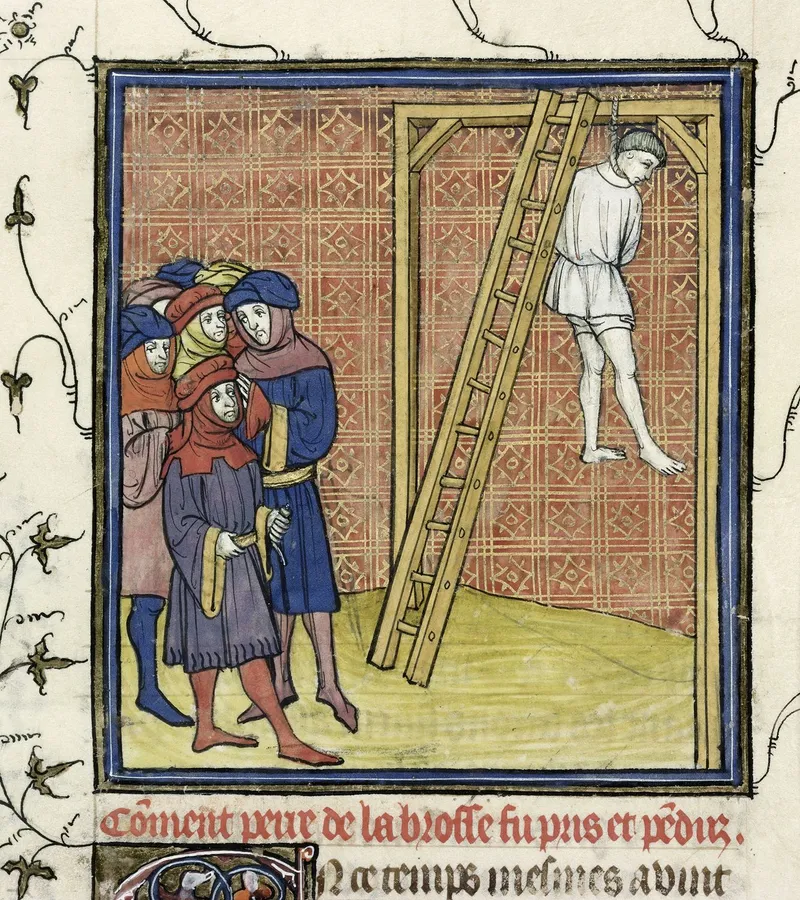 Cōment perre de la brosse fu pris et pēduz.
N ce temps meismes avint